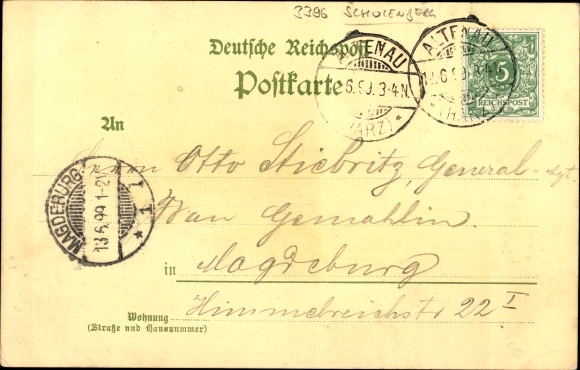 3396 SCHULENBERG
Deutsche Reichspost
Postkarte
ALTENAU
6.99. 3-4N.
(HARZ) *
ALTENAU
12.6.99. 3-4N.
(HARZ)
5
REICHSPOST
An
Herrn Otto Stiebritz, General-Agt.
Frau Gemahlin
in Magdeburg
Himmelreichstr 22 I
Wohnung
(Straße und Hausnummer)
MAGDEBURG
13.6.99.1-2
* 1 *